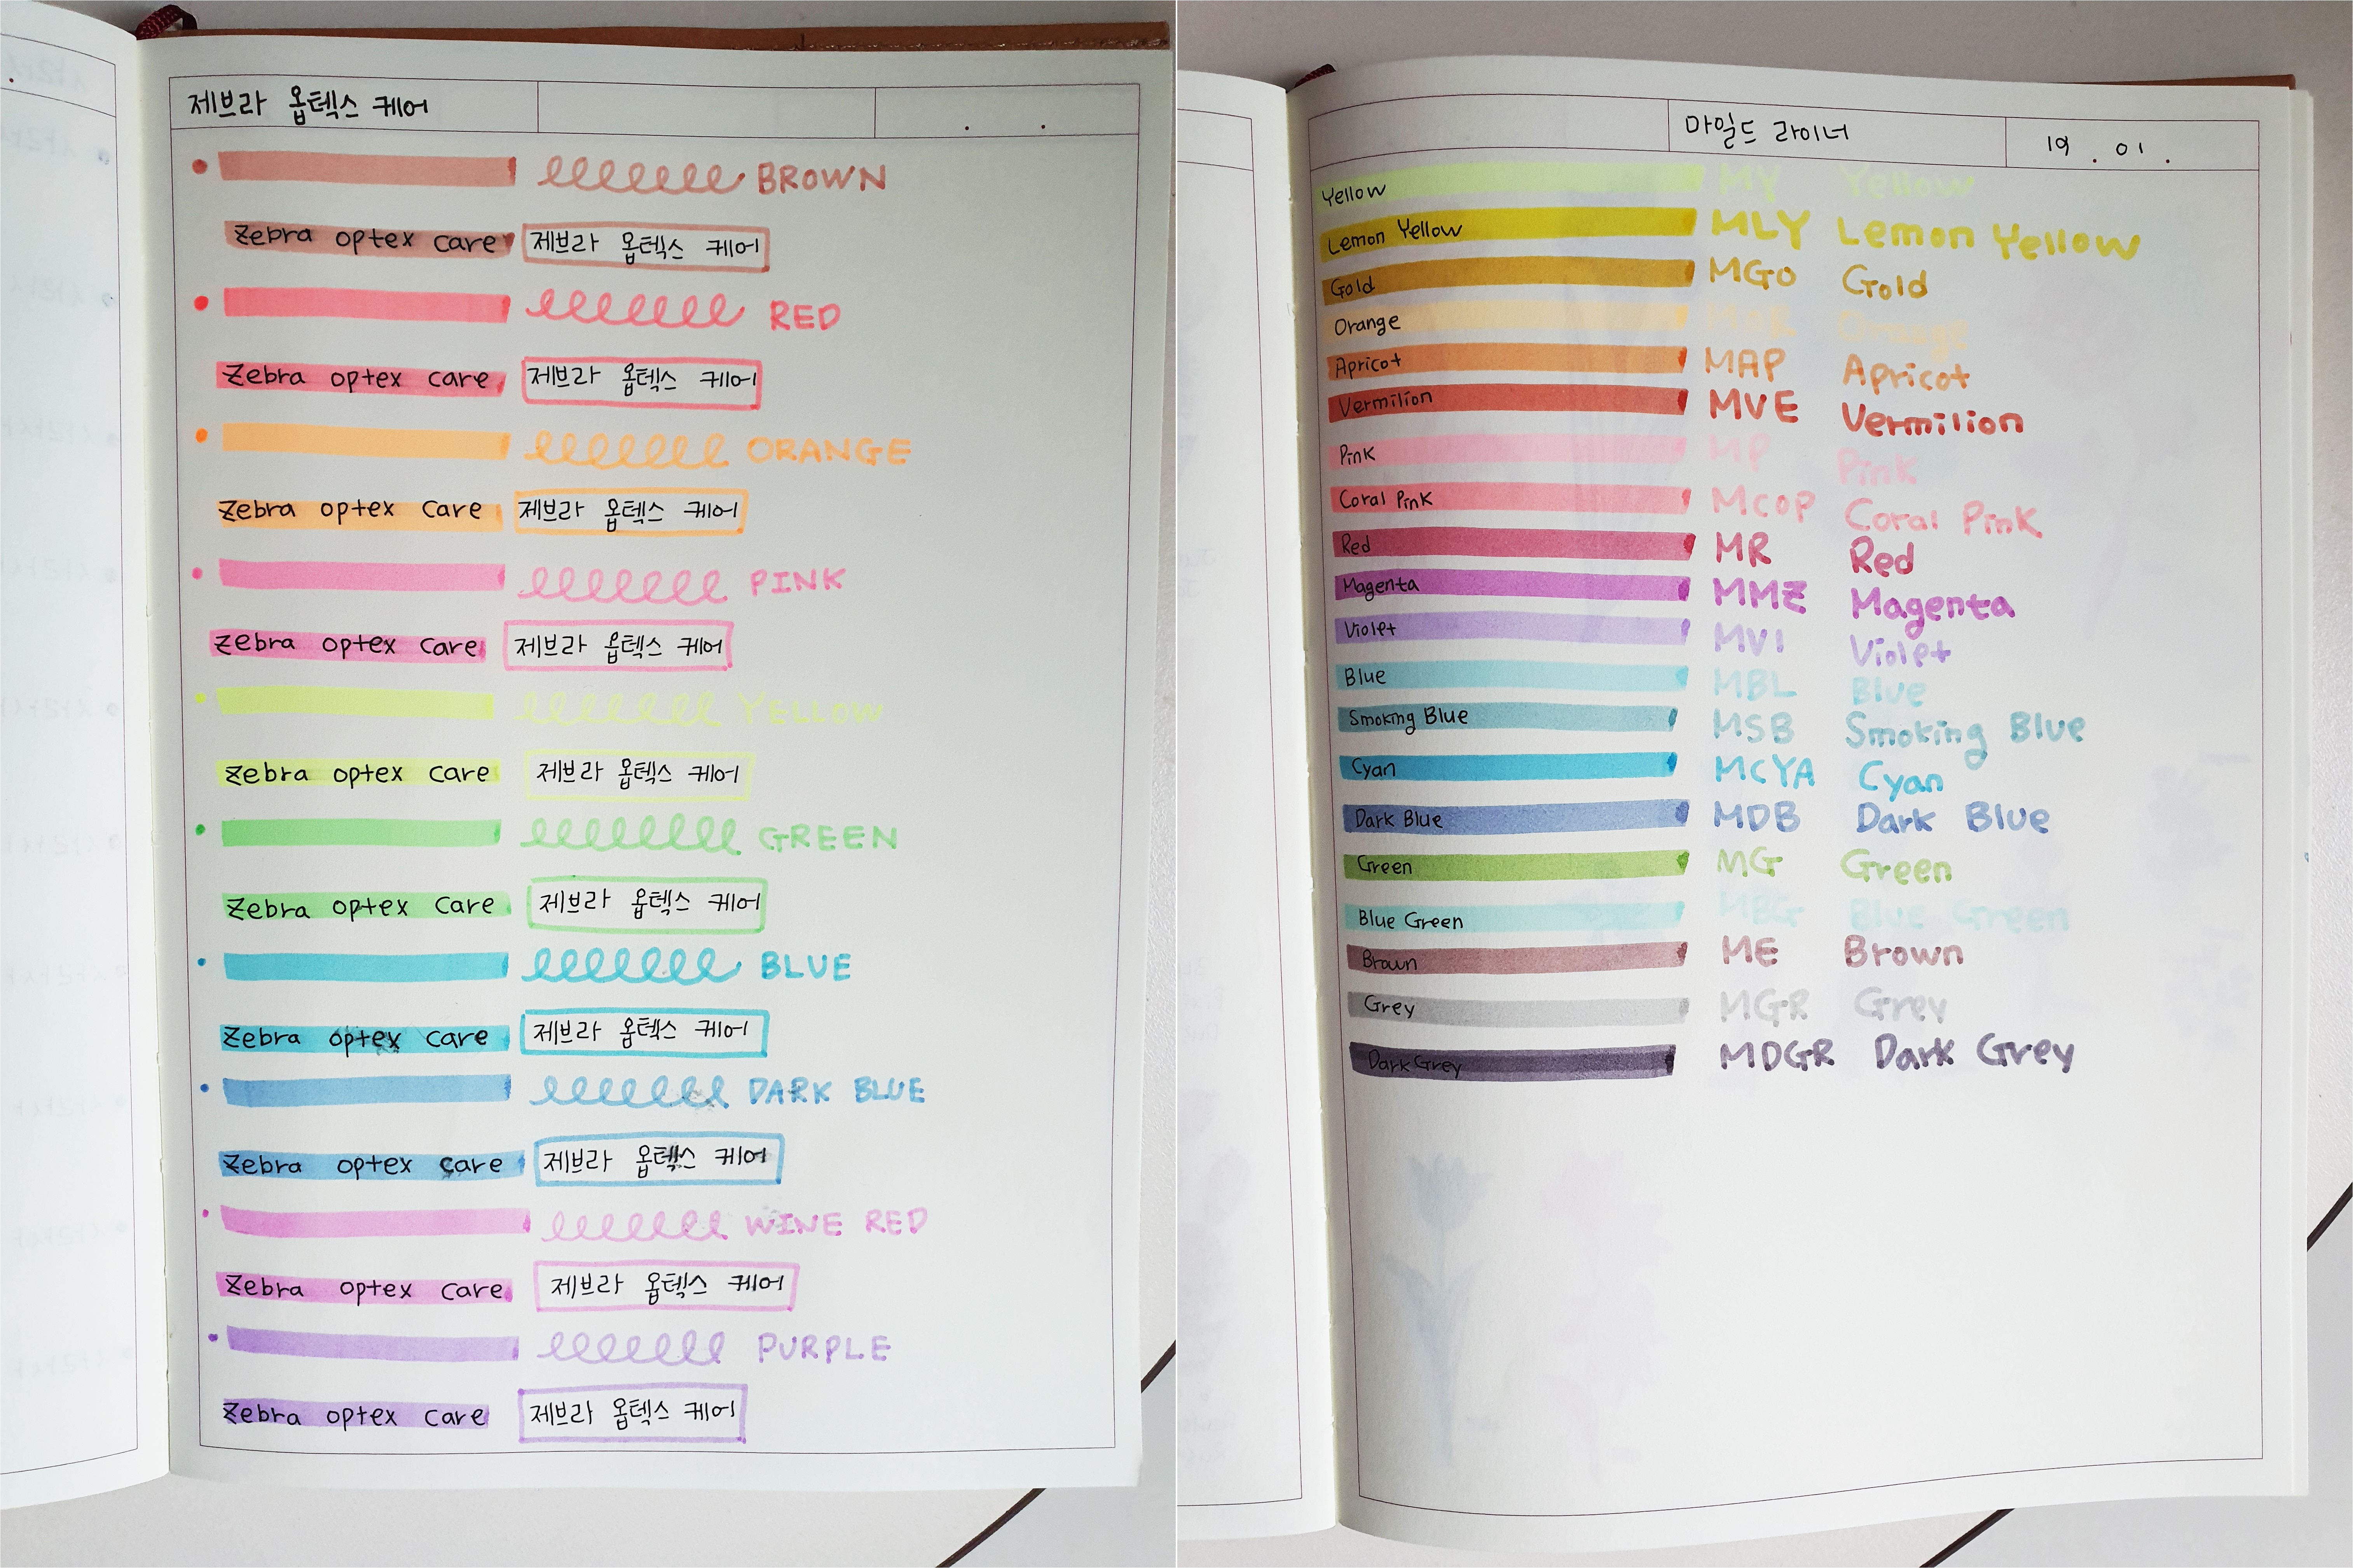 제브라 옵텍스 케어
BROWN
Zebra optex care 제브라 옵텍스 케어
RED
Zebra optex care 제브라 옵텍스 케어
ORANGE
Zebra optex care 제브라 옵텍스 케어
PINK
Zebra optex care 제브라 옵텍스 케어
YELLOW
Zebra optex care 제브라 옵텍스 케어
GREEN
Zebra optex care 제브라 옵텍스 케어
BLUE
Zebra optex care 제브라 옵텍스 케어
DARK BLUE
Zebra optex care 제브라 옵텍스 케어
WINE RED
Zebra optex care 제브라 옵텍스 케어
PURPLE
Zebra optex care 제브라 옵텍스 케어
마일드 라이너 19 . 01 .
Yellow MY Yellow
Lemon Yellow MLY Lemon Yellow
Gold MGO Gold
Orange MOR Orange
Apricot MAP Apricot
Vermilion MVE Vermilion
Pink MP Pink
Coral Pink MCOP Coral Pink
Red MR Red
Magenta MMZ Magenta
Violet MVI Violet
Blue MBL Blue
Smoking Blue MSB Smoking Blue
Cyan MCYA Cyan
Dark Blue MDB Dark Blue
Green MG Green
Blue Green MBG Blue Green
Brown ME Brown
Grey MGR Grey
Dark Grey MDGR Dark Grey